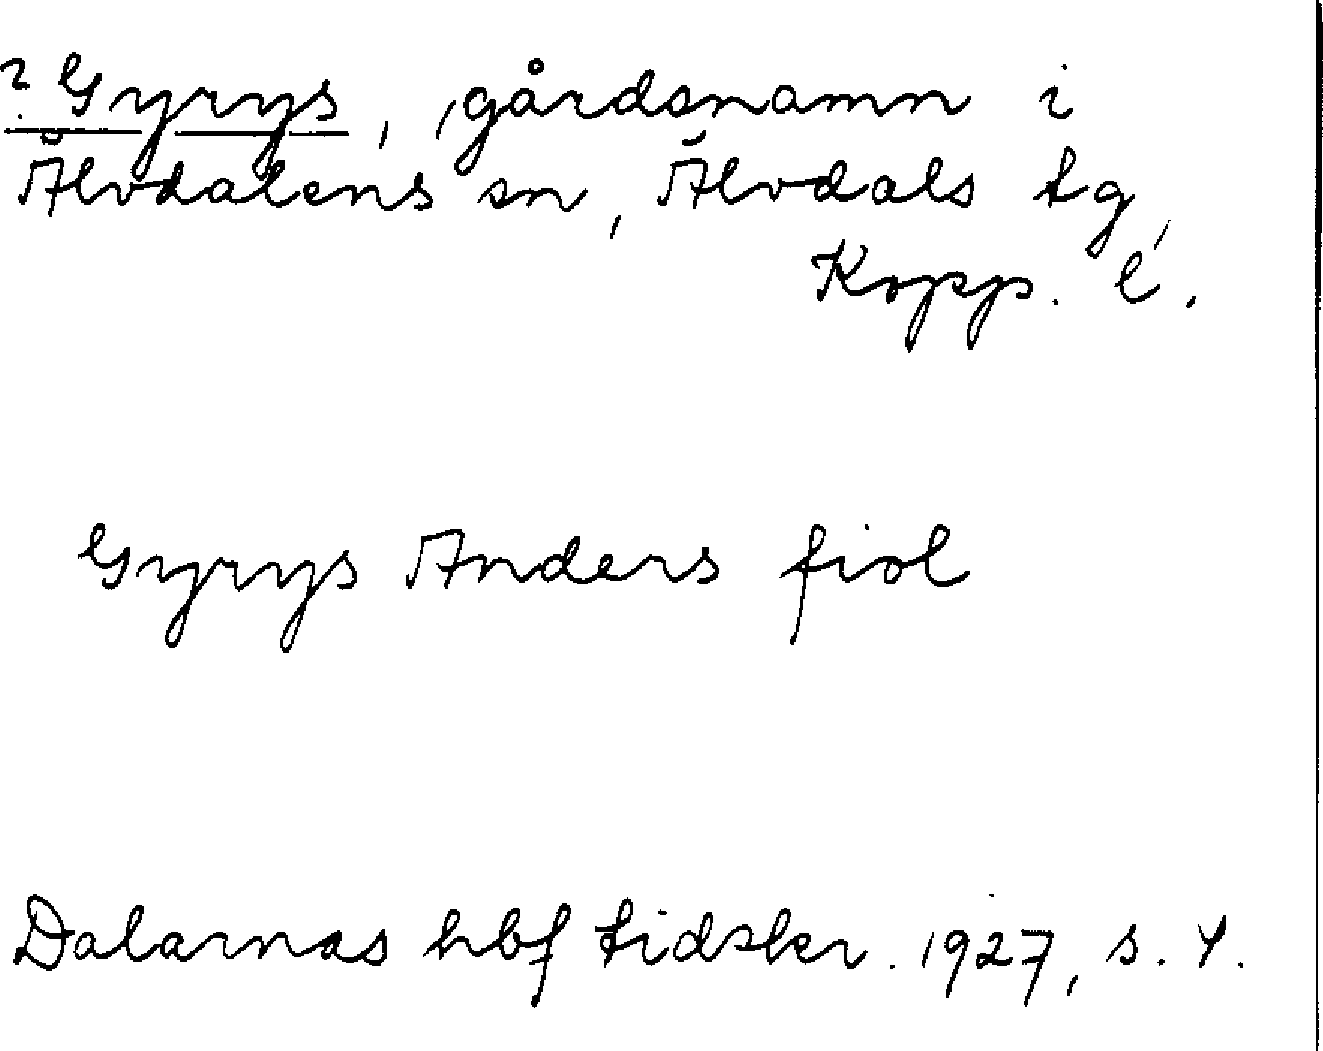 ? Gyrys, gårdsnamn i
Älvdalens sn, Älvdals tg,
Kopp. l.
Gyrys Anders fiol
Dalarnas hbf tidskr. 1927, s. 4.